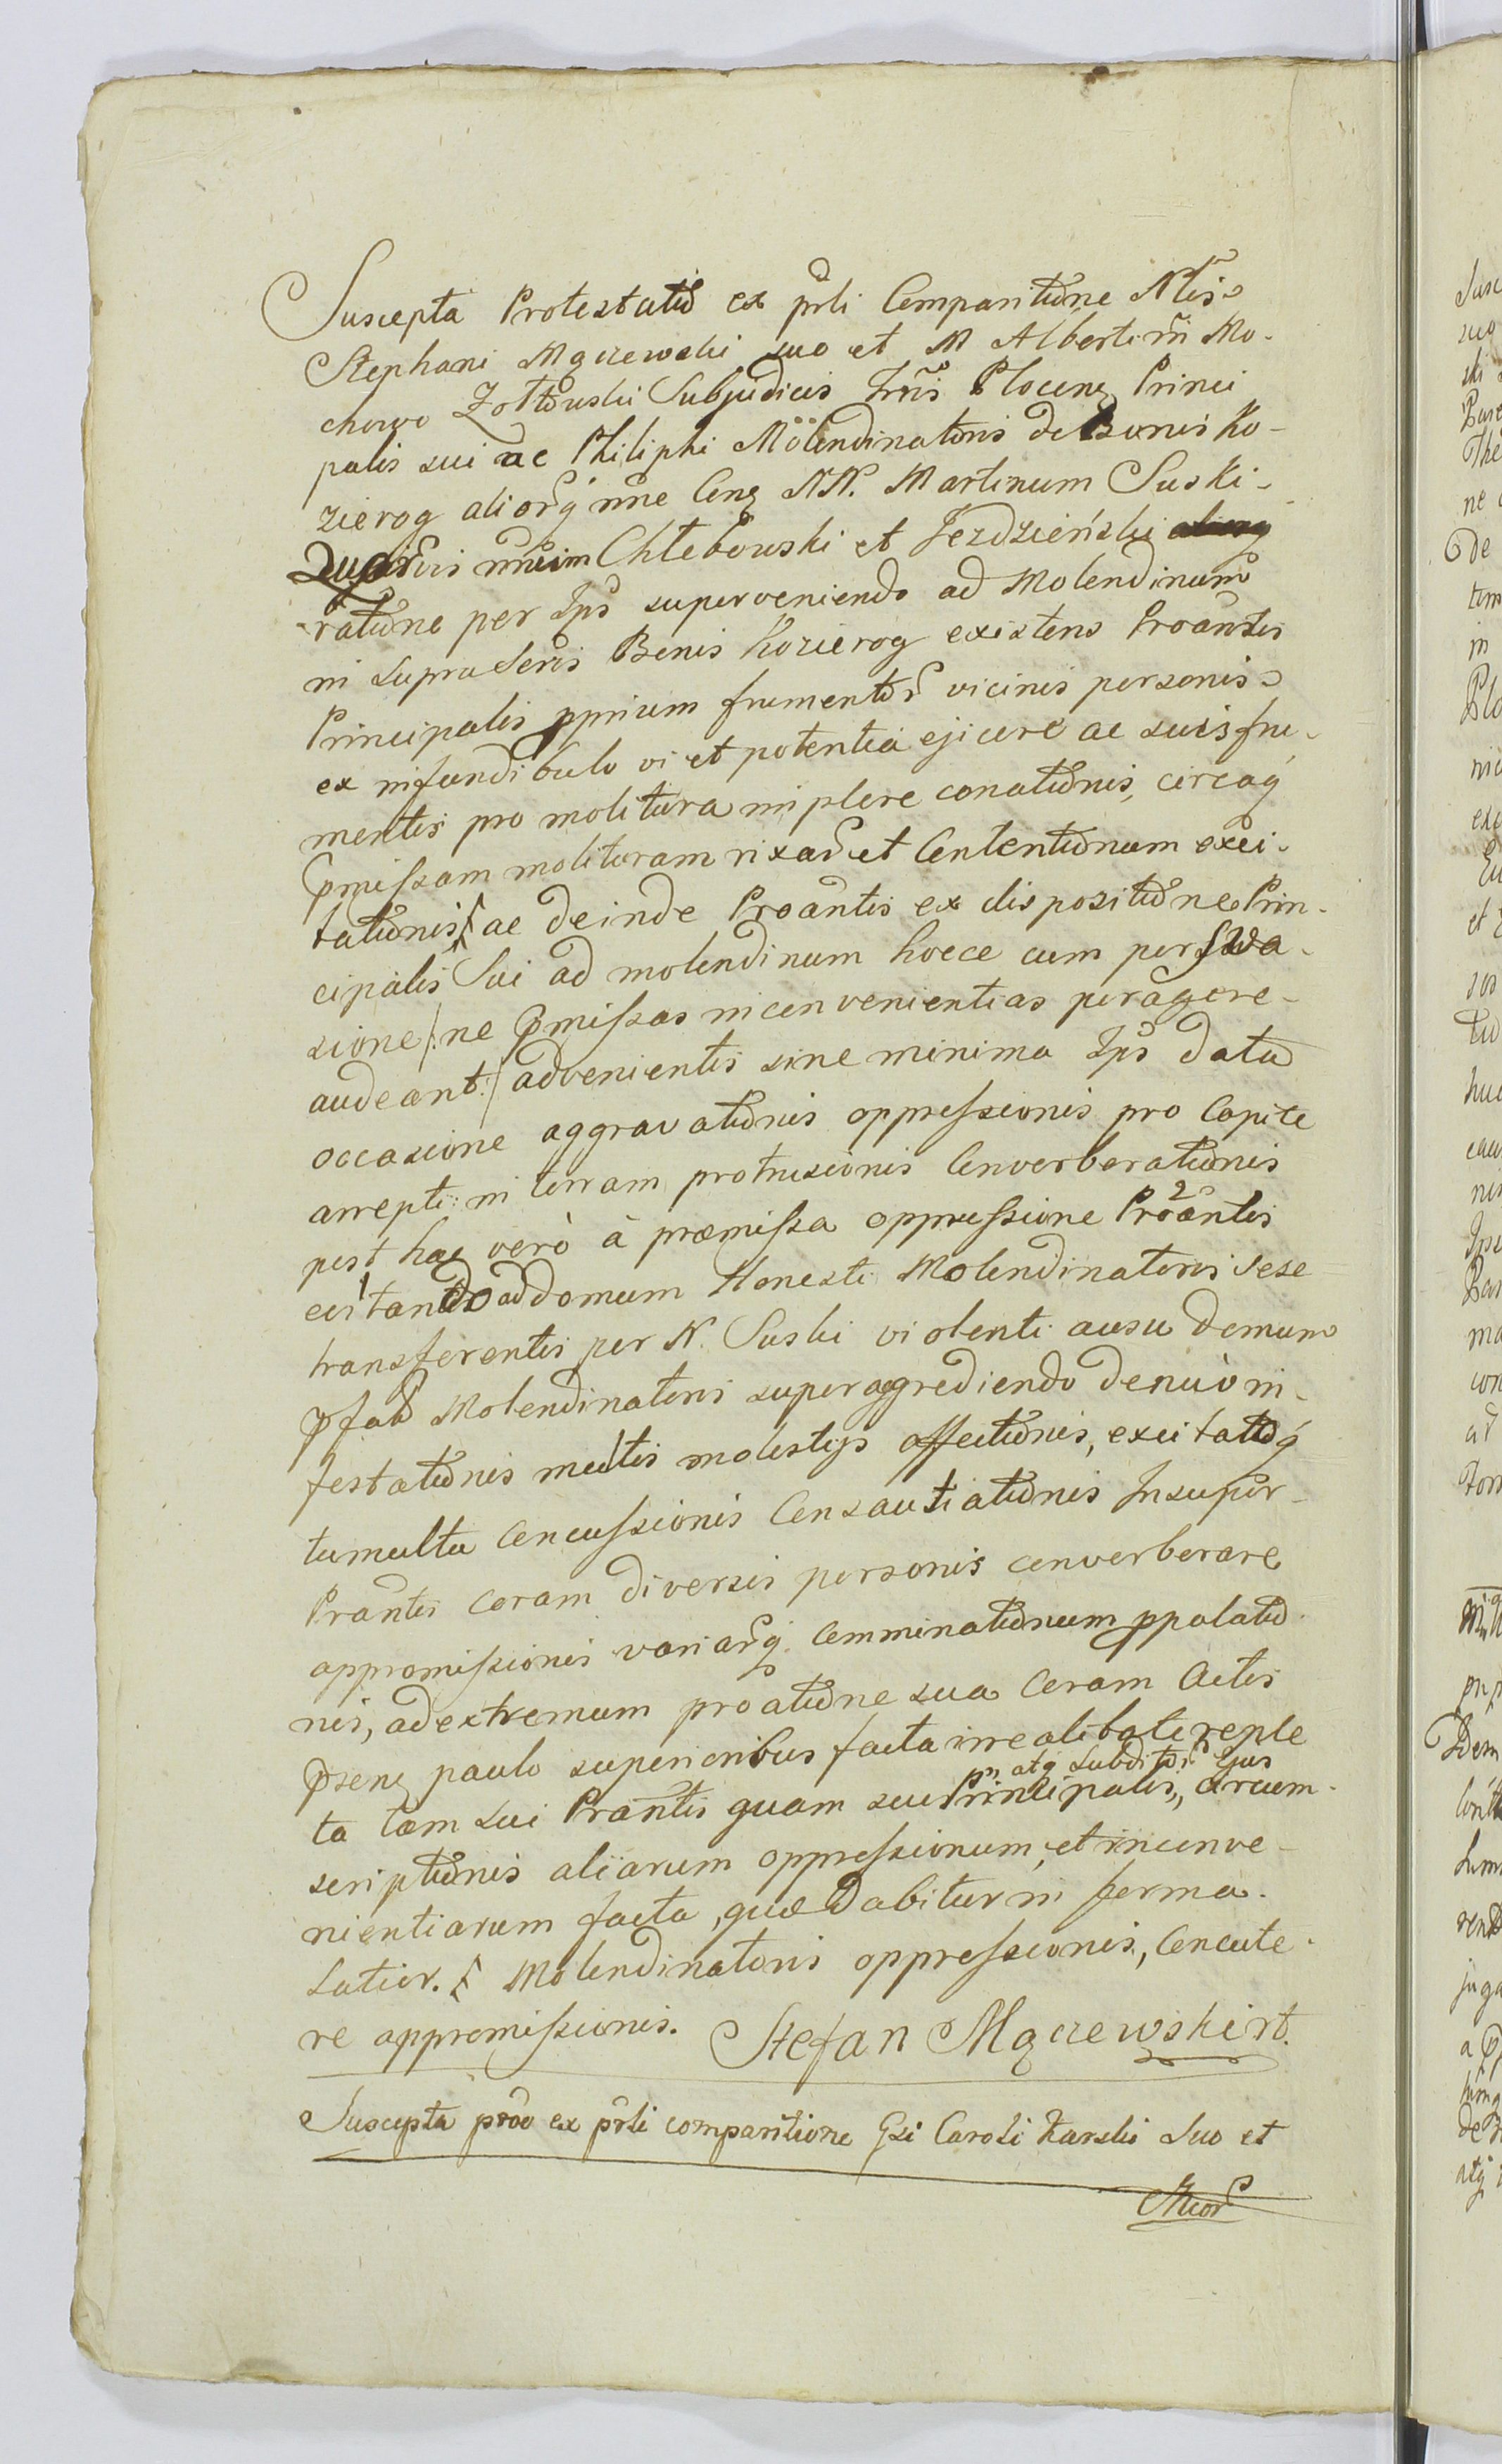 Suscepta Protestatio ex prli Comparitione Nlis
Stephani Mączewski suo et M Alberti in Mo-
chowo Zołtowski Subjudicis Trris Plocens Princi
palis sui ac Philiphi Molendinatoris de Bonis Ko-
zierog aliorq nne Cong NN. Martinum Suski
Chlebowski et Jezdzieński
ratione per Ips superveniendo ad Molendinum
in supra Scris Bonis Kozierog existens Proantis
Principalis pprium frumentor vicinis personis
ex infundibulo vi et potentia ejicere ac suis fru-
mentis pro molitura implere conationis, circaq
pmissam molituram rixar et Contentionum exci-
tationis, ac deinde Proantis ex dispositione Prin-
cipalis Sui ad molendinum hocce cum perswa-
sione /: ne pmissas inconvenientias peragere
audeant :/ advenientis sine minima Ips data
occasione aggravationis oppressionis pro Capite
arrepti in terram protrusionis Converberationis
post hac verò à præmissa oppressione Proantis
evitando ad domum Honesti Molendinatoris sese
transferentis per N. Suski violenti ausu demum
pfati Molendinatoris superaggrediendo denuò in-
festationis multis molestys affectionis, excitatoq
tumultu Concussionis Consautiationis Insuper
Prantis coram diversis personis converberare
appromissionis variarq. Comminationum ppalatio
nis, ad extremum proatione sua Coram Actis
psens paulo superioribus facta irrealitate reple
ta tam sui Prantis quam sui Principalis, atq subditor Ejus circum-
scriptionis aliarum oppressionum, et inconve-
nientiarum facta, quæ Dabitur in forma
Latior. Molendinatoris oppressionis, Concute-
re appromissionis. Stefan Mączewski rt.
Suscepta proo ex prli comparitione Gsi Caroli Karski Suo et